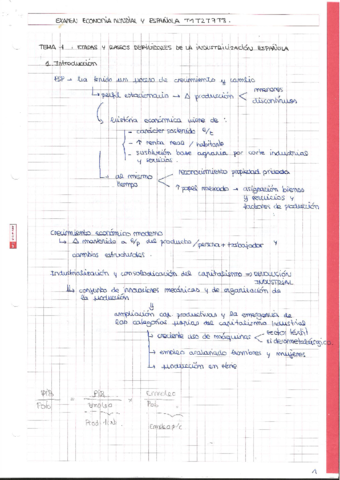 EXAMEN: ECONOMÍA MUNDIAL Y ESPAÑOLA T1T2T7T8.
TEMA 1: ETAPAS Y RASGOS DEFINIDORES DE LA INDUSTRIALIZACIÓN ESPAÑOLA
1. Introducción
→ Ha tenido un proceso de crecimiento y cambio
↳ perfil estacionario → Δ producción < menores
discontinuos
↳ historia económica viene de:
- carácter sostenido
- ↑ renta real / habitante
- sustitución base agraria por corte industrial
y servicios.
↳ al mismo tiempo < reconocimiento propiedad privada
↑ papel mercado → asignación bienes
y servicios y
factores de producción
Crecimiento económico moderno
↳ Δ mantenido a l/p del producto / persona + trabajador y
cambios estructurales.
Industrialización y consolidación del capitalismo ⇒ REVOLUCIÓN
INDUSTRIAL
↳ conjunto de innovaciones mecánicas y de organización de
la producción
y
ampliación cap. productivas y la emergencia de
las categorías propias del capitalismo industrial
↳ creciente uso de máquinas < sector textil
siderometalúrgica
↳ empleo asalariado hombres y mujeres
↳ producción en serie
PIB / Pob = PIB / Empleo × Empleo / Pob
1